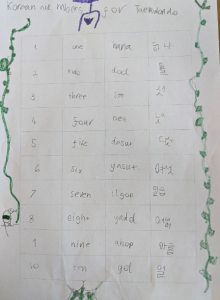 Korean numbers for Taekwondo
1 one hana 하나
2 two dool 둘
3 three set 셋
4 four net 넷
5 five dasut
6 six yusut
7 seven ilgop 일곱
8 eight yadol
9 nine ahop 아홉
10 ten yol 열